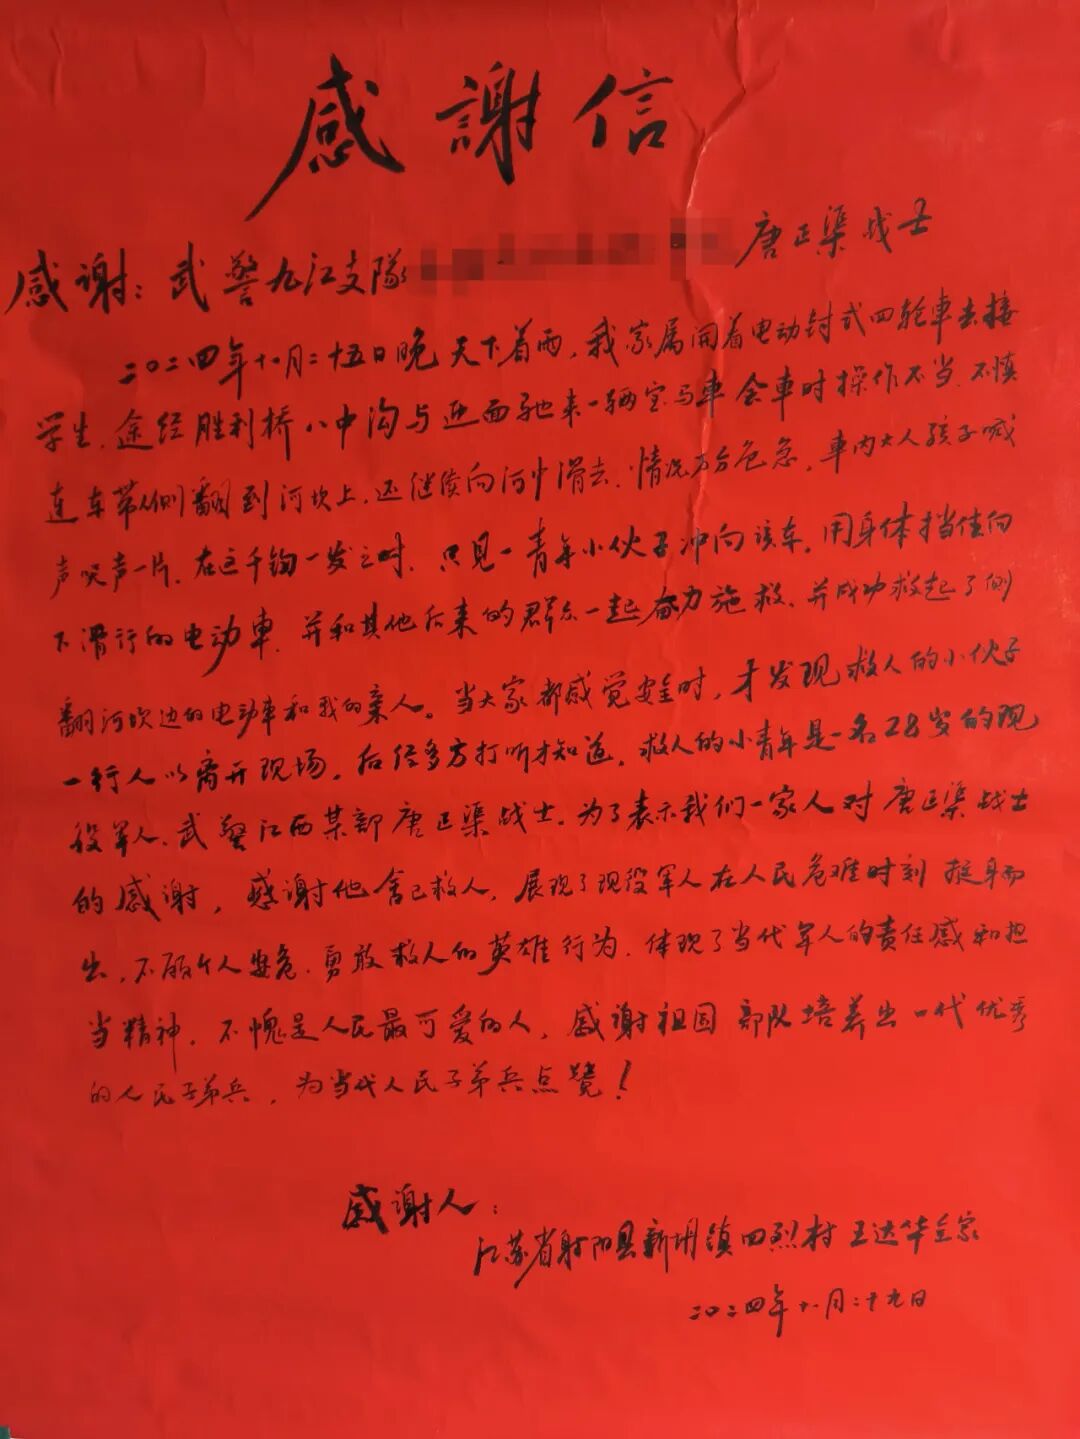 感謝信
感谢：武警九江支隊 唐正渠战士
二〇二四年十一月二十五日晚天下着雨，我家属开着电动封式四轮車去接
学生，途经胜利桥八中沟与迎面驰来一辆宝马車会車时操作不当，不慎
连车带人侧翻到河坎上，还继续向河中滑去，情况万分危急，車内大人孩子喊
声哭声一片，在这千钧一发之时，只见一青年小伙子冲向该车，用身体挡住向
下滑行的电动車，并和其他后来的群众一起奋力施救，并成功救起了侧
翻河坎边的电动车和我的亲人。当大家都感觉安全时，才发现救人的小伙子
一行人以离开现场，后经多方打听才知道，救人的小青年是一名28岁的现
役军人，武警江西某部唐正渠战士。为了表示我们一家人对唐正渠战士
的感谢，感谢他舍己救人，展现了现役军人在人民危难时刻挺身而
出，不顾个人安危，勇敢救人的英雄行为，体现了当代军人的责任感和担
当精神，不愧是人民最可爱的人，感谢祖国部队培养出一代优秀
的人民子弟兵，为当代人民子弟兵点赞！
感谢人：
江苏省射阳县新坍镇四烈村王达华全家
二〇二四年十一月二十九日